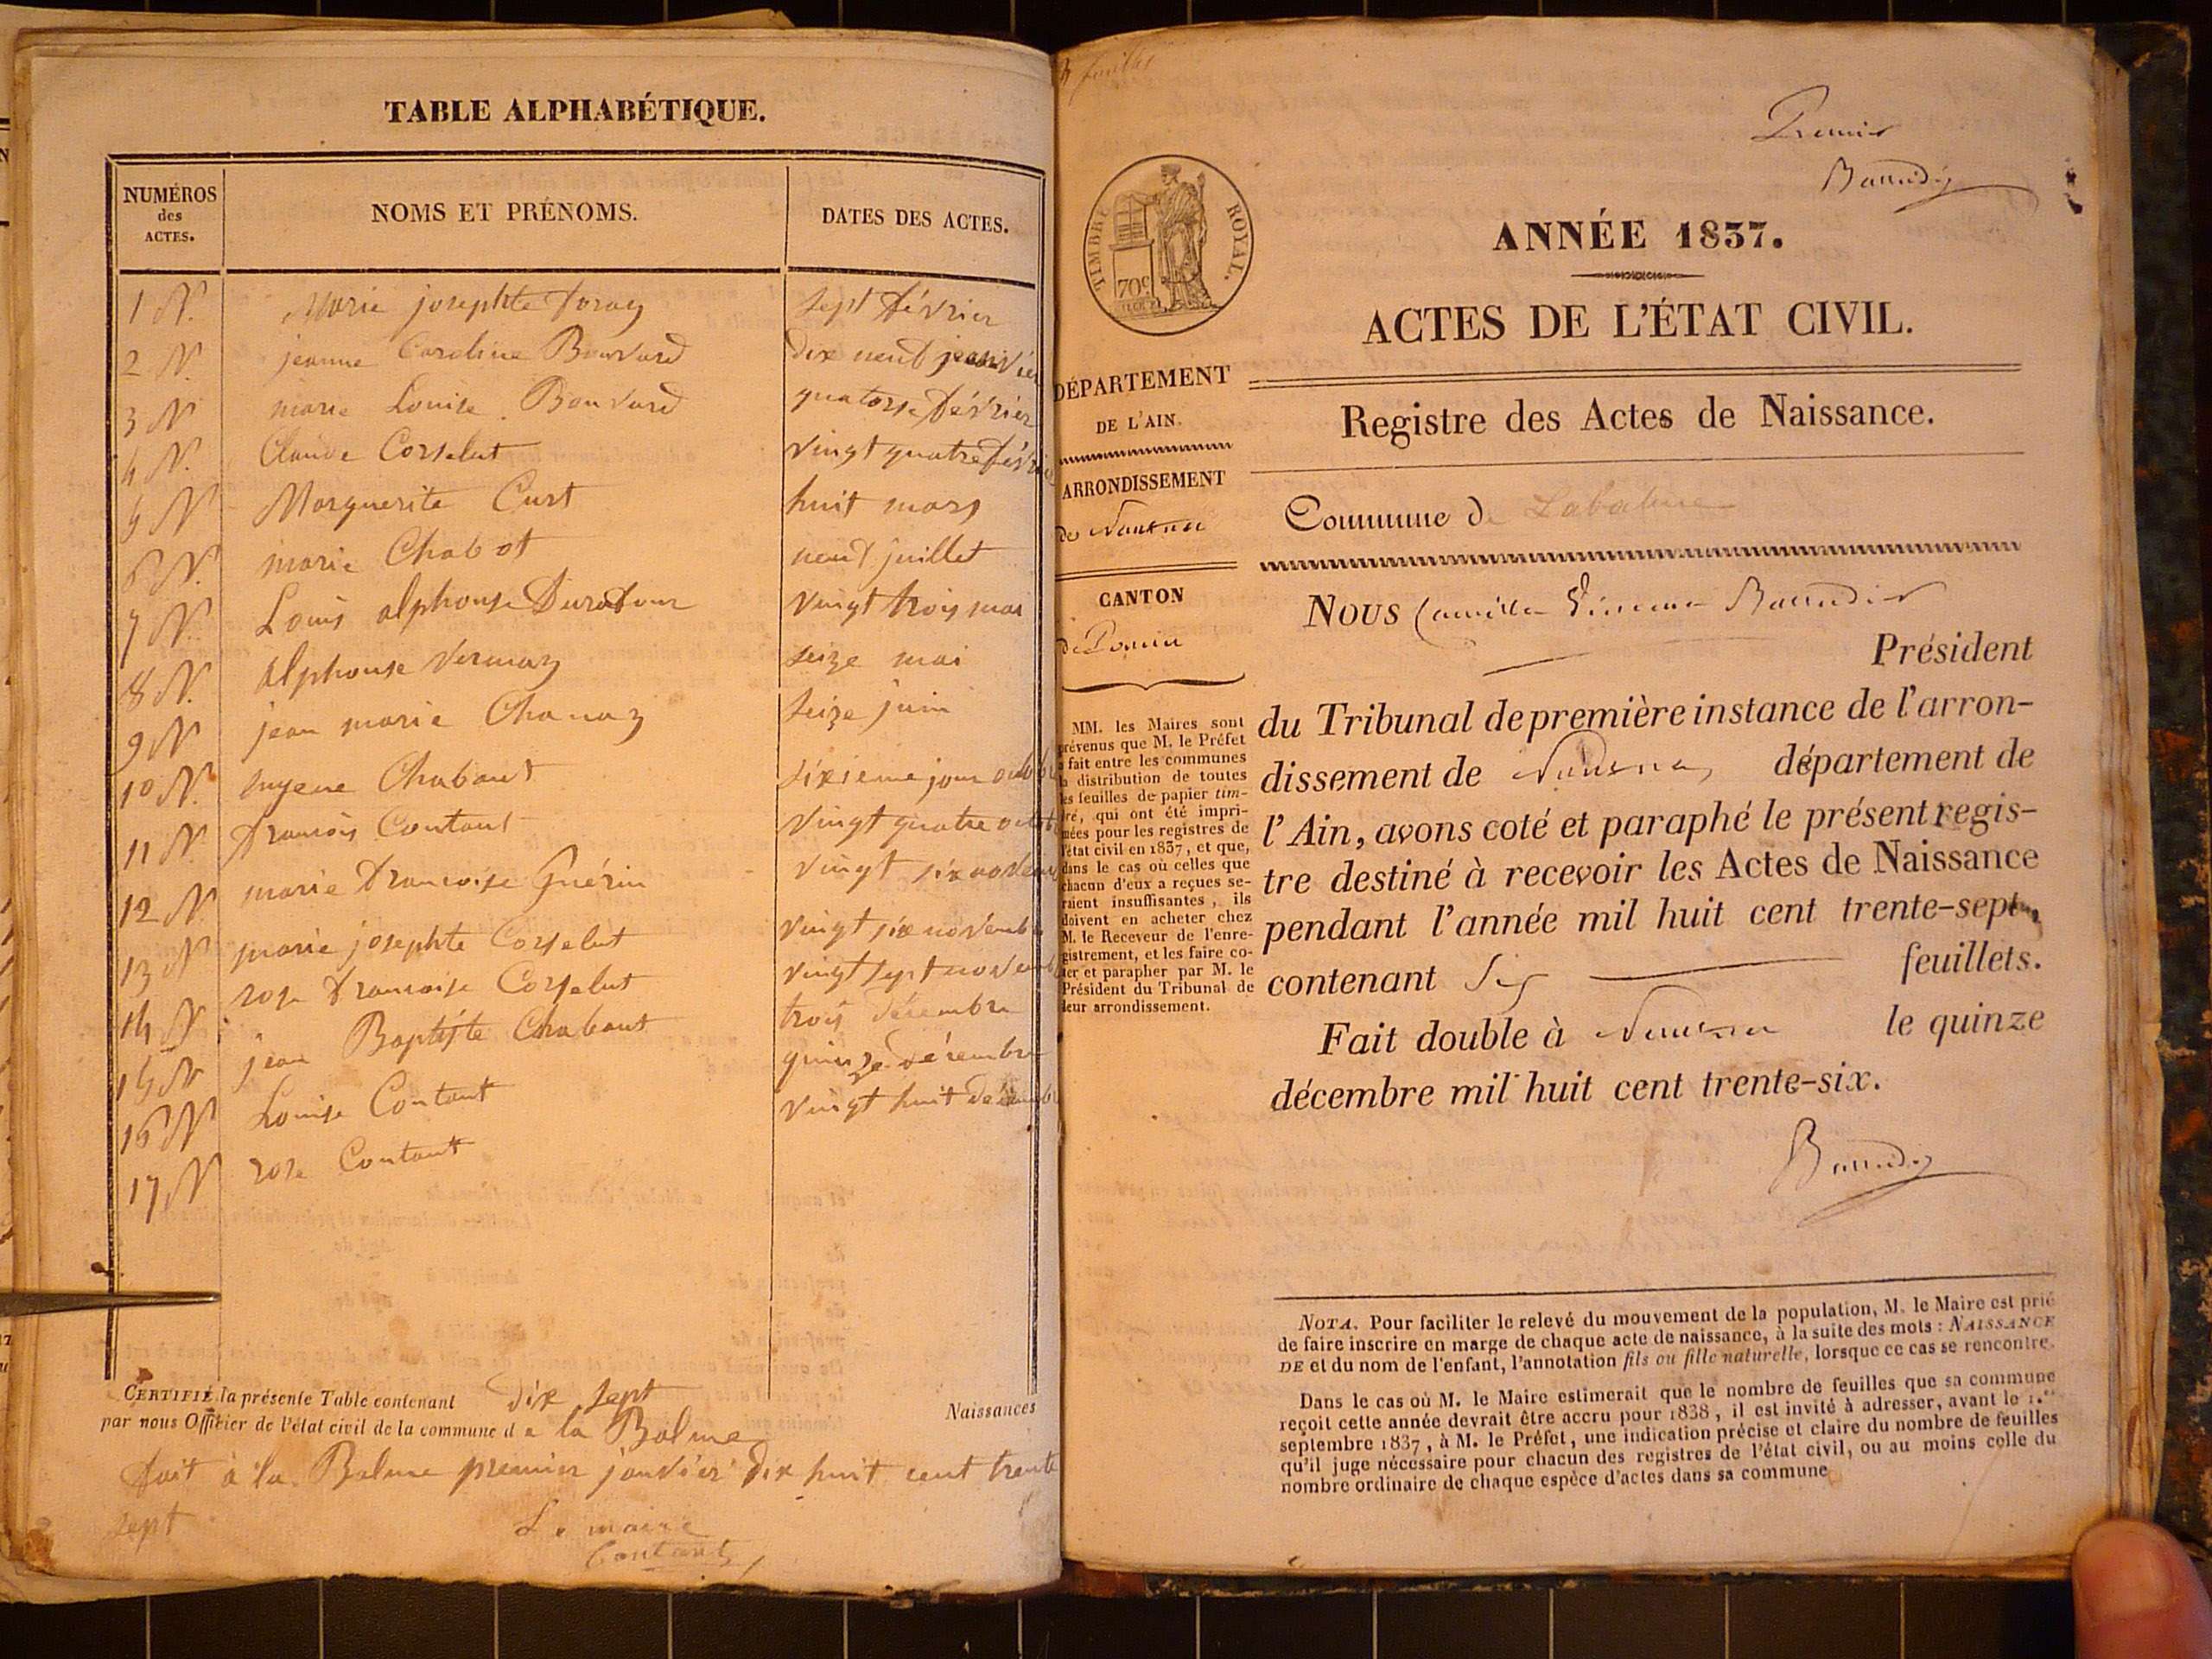 TABLE ALPHABÉTIQUE.
NUMÉROS
des
ACTES.
NOMS ET PRÉNOMS.
DATES DES ACTES.
1 N. Marie josephte sept février
2 N. jeanne Caroline Bouvard dix neuf janvier
3 N marie Louise Bouvard quatorze février
4 N. Claude Corselut vingt quatre
5 N Marguerite Curt huit mars
6 N. marie Chabot neuf juillet
7 N. Louis alphonse Durafour vingt trois mai
8 N. alphonse Vermay seize mai
9 N jean marie Chanay seize juin
10 N. Chabout sixieme jour
11 N. francois Contant vingt quatre
12 N. marie francoise Guérin vingt six
13 N marie josephte Corselut vingt six
14 N rose francoise Corselut vingt sept
15 N jean Baptiste Chabout trois décembre
16 N Louise Contant quinze décembre
17 N rose Contant vingt huit
CERTIFIÉ la présente Table contenant dix sept Naissances
par nous Officier de l'état civil de la commune de la Balme
fait à la Balme premier janvier dix huit cent trente
sept
Le maire
Contant
feuilles
Premier
TIMBRE ROYAL.
70c
ANNÉE 1837.
ACTES DE L'ÉTAT CIVIL.
DÉPARTEMENT
DE L'AIN.
ARRONDISSEMENT
de Nantua
CANTON
de Poncin
MM. les Maires sont
prévenus que M. le Préfet
a fait entre les communes
la distribution de toutes
les feuilles de papier tim-
bré, qui ont été impri-
mées pour les registres de
l'état civil en 1837, et que,
dans le cas où celles que
chacun d'eux a reçues se-
raient insuffisantes, ils
doivent en acheter chez
M. le Receveur de l'enre-
gistrement, et les faire co-
ter et parapher par M. le
Président du Tribunal de
leur arrondissement.
Registre des Actes de Naissance.
Commune de Labalme
Nous Camille
Président
du Tribunal de première instance de l'arron-
dissement de Nantua, département de
l'Ain, avons coté et paraphé le présent regis-
tre destiné à recevoir les Actes de Naissance
pendant l'année mil huit cent trente-sept,
contenant Six feuillets.
Fait double à Nantua le quinze
décembre mil huit cent trente-six.
NOTA. Pour faciliter le relevé du mouvement de la population, M. le Maire est prié
de faire inscrire en marge de chaque acte de naissance, à la suite des mots : NAISSANCE
DE et du nom de l'enfant, l'annotation fils ou fille naturelle, lorsque ce cas se rencontre.
Dans le cas où M. le Maire estimerait que le nombre de feuilles que sa commune
reçoit cette année devrait être accru pour 1838, il est invité à adresser, avant le 1.er
septembre 1837, à M. le Préfet, une indication précise et claire du nombre de feuilles
qu'il juge nécessaire pour chacun des registres de l'état civil, ou au moins celle du
nombre ordinaire de chaque espèce d'actes dans sa commune